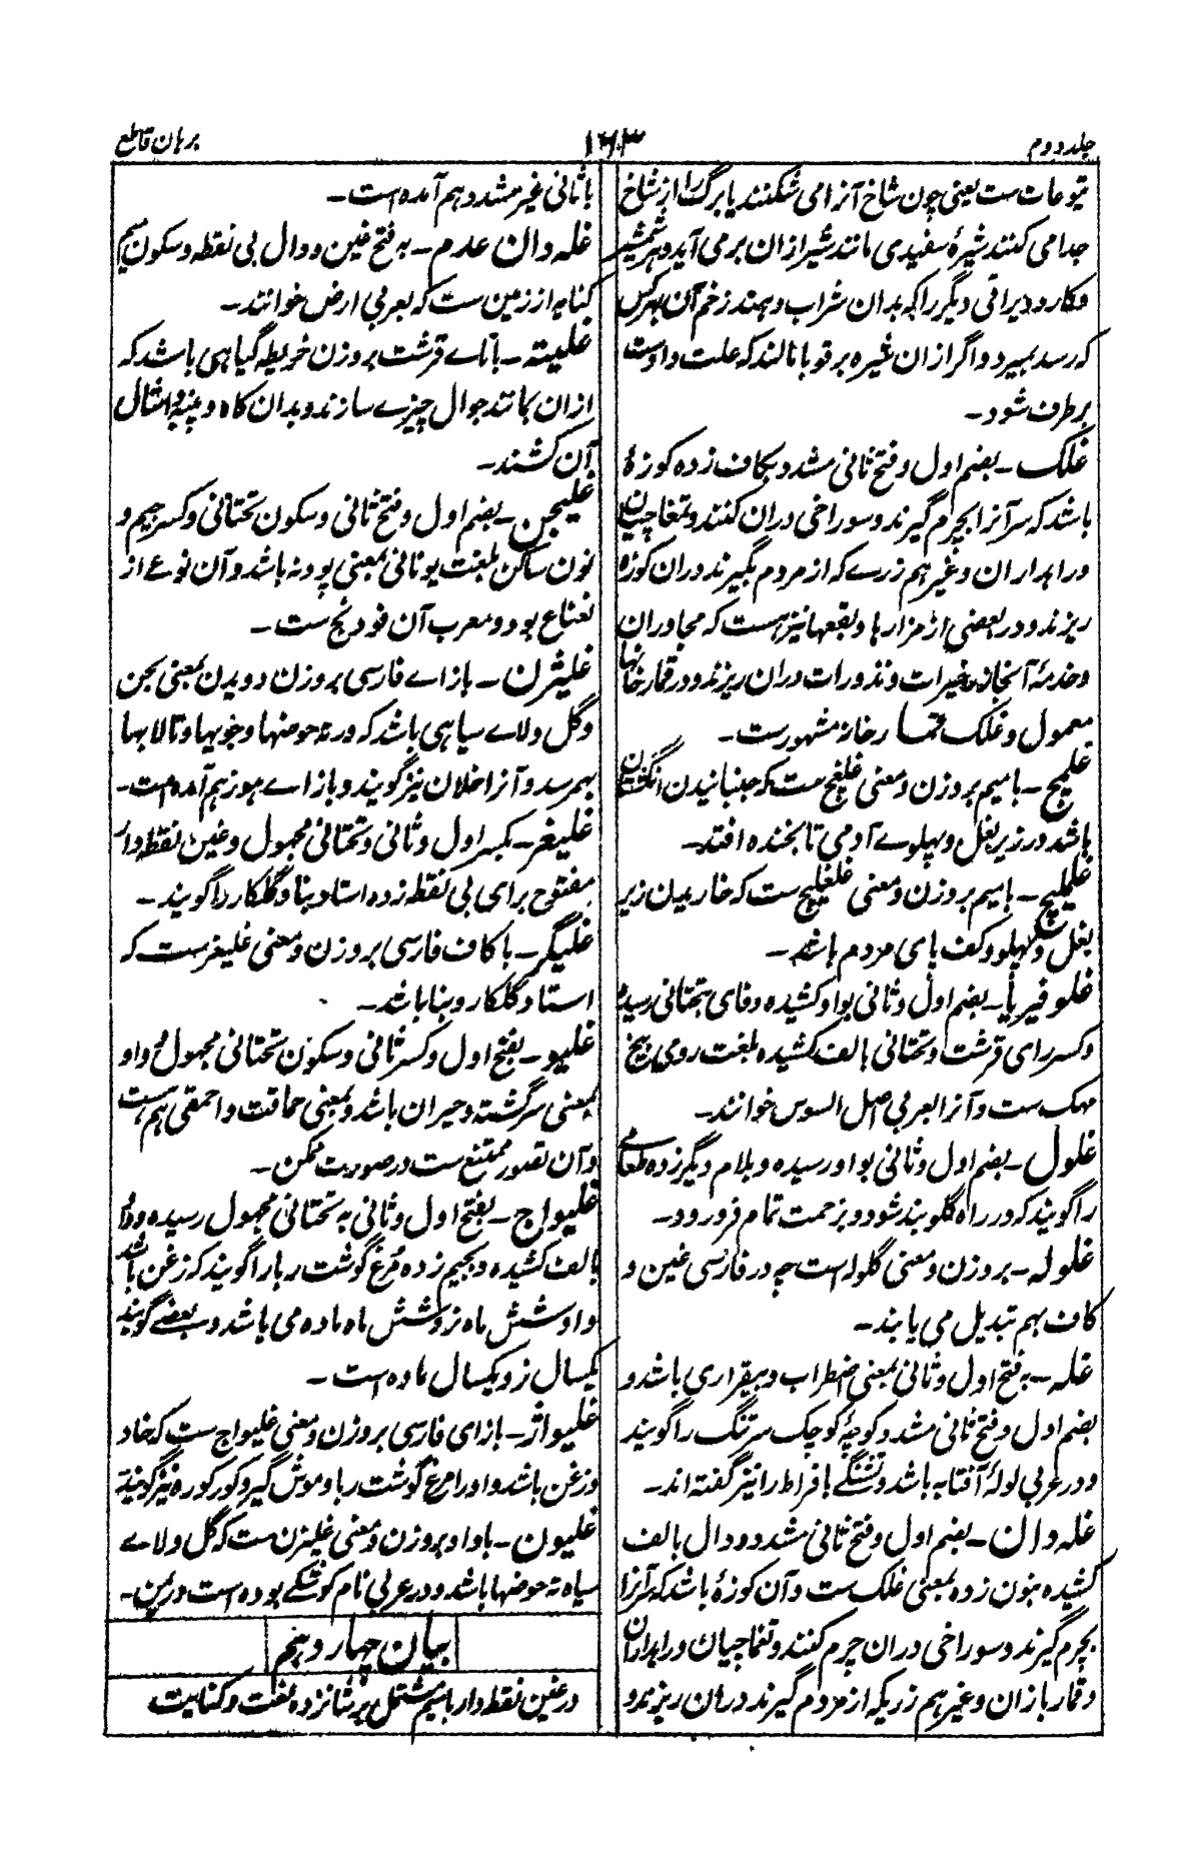 جلد دوم
۱۶۰۳
برهان قاطع
یتوعات ست یعنی چون شاخ آنرا می شکنند یا برگ را از شاخ
جدا می کنند شیرهٔ سفیدی مانند شیر ازان بر می آید و هر شمشیر
و کارد و یراقی دیگر را که بدان شراب دهند زخم آن بهر کس
که رسد بمیرد و اگر ازان شیره بر قوبا مالند که علت داد ست
بر طرف شود۔
غلک۔ بضم اول و فتح ثانی مشدد و بکاف زده کوزهٔ
باشد که سر آنرا بچرم گیرند و سوراخی دران کنند و تمغاچیان
و راهداران و غیرهم زرے که از مردم بگیرند دران کوزه
ریزند و در بعضی از مزارها و بقعها نیز هست که مجاوران
و خدمهٔ آنجا زر خیرات و نذورات دران ریزند و در قمارخانها
معمول و غلک قمارخانه مشهورست۔
غلمج۔ با میم بر وزن و معنی غلغج ست که جنبانیدن انگشتان
باشد در زیر بغل و پهلوے آدمی تا بخنده افتد۔
غلملیج۔ با میم بر وزن و معنی غلغلیج ست که خاریدن زیر
بغل و پهلو و کف پای مردم باشد۔
غلوفیریا۔ بضم اول و ثانی بواو کشیده و فای بتحتانی رسیده
و کسر رای قرشت و تحتانی بالف کشیده بلغت رومی بیخ
مهک ست و آنرا بعربی اصل السوس خوانند۔
غلول۔ بضم اول و ثانی بواو رسیده و بلام دیگر زده طعامے
را گویند که در راه گلو بند شود و بزحمت تمام فرو رود۔
غلوله۔ بر وزن و معنی گلوله است چه در فارسی غین و
کاف بهم تبدیل می یابند۔
غله۔ بفتح اول و ثانی بمعنی اضطراب و بیقراری باشد و
بضم اول و فتح ثانی مشدد کوچهٔ کوچک سرتنگ را گویند
و در عربی لولهٔ آفتابه باشد و تشنگے بافراط را نیز گفته اند۔
غله دان۔ بضم اول و فتح ثانی مشدد و دال بالف
کشیده بنون زده بمعنی غلک ست و آن کوزهٔ باشد که سر آنرا
بچرم گیرند و سوراخی دران چرم کنند و تمغاچیان و راهداران
و قماربازان و غیرهم زریکه از مردم گیرند دران ریزند و
با ثانی غیر مشدد هم آمده است۔
غله دان عدم۔ به فتح عین و دال بی نقطه و سکون میم
کنایه از زمین ست که بعربی ارض خوانند۔
غلیته۔ با تاے قرشت بر وزن خریطه گیاهی باشد که
ازان مانند جوال چیزے سازند و بدان کاه و پنبه و امثال
آن کشند۔
غلیجن۔ بضم اول و فتح ثانی و سکون تحتانی و کسر جیم و
نون ساکن بلغت یونانی بمعنی پودنه باشد و آن نوعے از
نعناع بود و معرب آن فودنج ست۔
غلیژن۔ با زاے فارسی بر وزن دویدن بمعنی لجن
و گل و لاے سیاهی باشد که در ته حوضها و جویها و تالابها
بهم رسد و آنرا خلان نیز گویند و با زاے هوز هم آمده است۔
غلیغر۔ بکسر اول و ثانی و تحتانی مجهول و غین نقطه دار
مفتوح برای بی نقطه زده استاد بنا و گلکار را گویند۔
غلیگر۔ با کاف فارسی بر وزن و معنی غلیغرست که
استاد گلکار و بنا باشد۔
غلیو۔ بفتح اول و کسر ثانی و سکون تحتانی مجهول و واو
بمعنی سرگشته و حیران باشد و بمعنی حماقت و احمقی هم هست
و آن تصور ممتنع ست در صورت ممکن۔
غلیواج۔ بفتح اول و ثانی به تحتانی مجهول رسیده و واو
بالف کشیده و بجیم زده مرغ گوشت ربا را گویند که زغن باشد
و او شش ماه نر و شش ماه ماده می باشد و بعضے گویند
یکسال نر و یکسال ماده است۔
غلیواژ۔ با زای فارسی بر وزن و معنی غلیواج ست که خاد
و زغن باشد و او را مرغ گوشت ربا و موش گیر و کورکوره نیز گویند
غلیون۔ با واو بر وزن و معنی غلیژن ست که گل و لاے
سیاه ته حوضها باشد و در عربی نام کوشکے بوده است در یمن۔
بیان چهاردهم
در غین نقطه دار با میم مشتمل بر شانزده لغت و کنایت